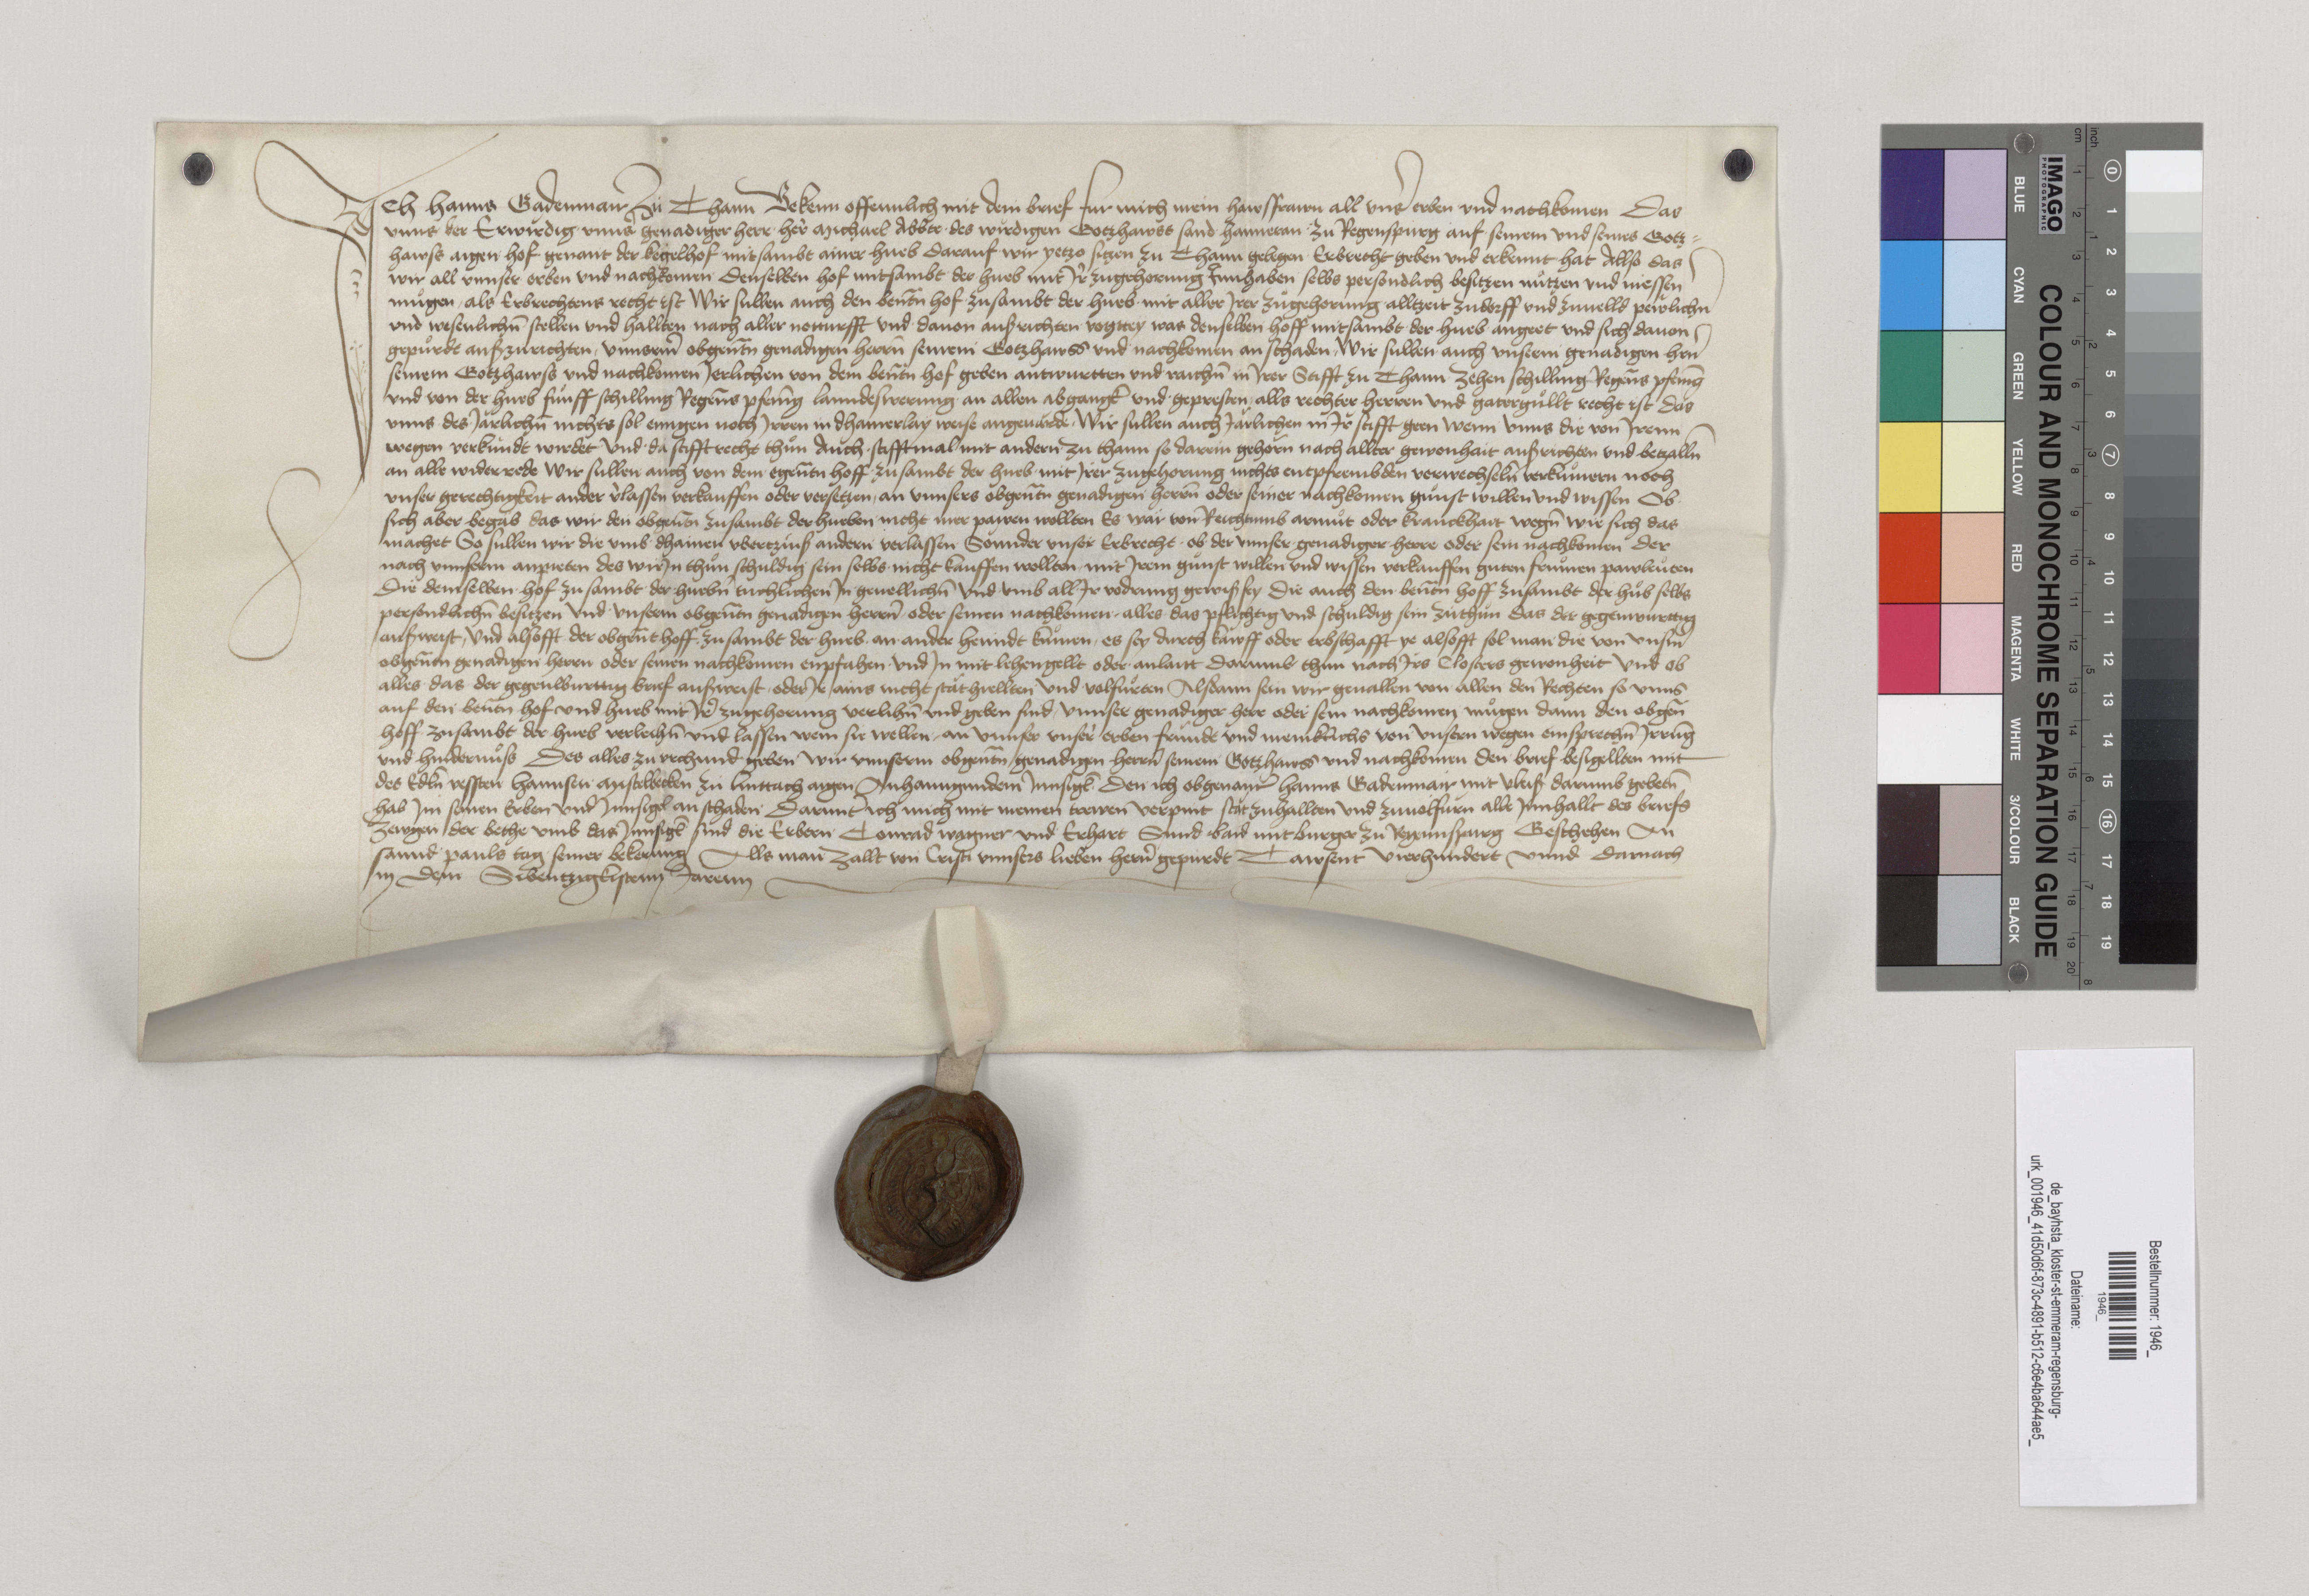 Ich Hanns Gadenmair zu Thann Bekenn offennlich mit dem brief fur mich mein hawsfrawn all unser erben und nachkomen Das
unns der Erwirdig unnser genadiger herr her Michael Abbte des wirdigen Gotzhawss sand Hameran zu Regenspurg auf seinem und seines Gotz-
hawss aigen hof genant der kegelhof mitsambt ainer hueb darauf wir yetzo sitzen zu Thann gelegen Erbrecht geben und erkennt hat Allso das
wir all unnser erben und nachkomen Denselben hof mitsambt der hueb mit Ir zugehorung Innhaben selbs persondlich besitzen nutzen und niessen
mugen als Erbrechtens recht ist Wir sullen auch den benanten hof zusambt der hueb mit aller Irer zugehorung alltzeit zudorff und zuuelld pewlichn
und wesenlichn stellen und hallten nach aller notturfft und dauon aufzrichten vogttey was denselben hoff mitsambt der hueb anget und sich dauon
gepurdt aufzurichten, unnserm obgenanten genadigen herrn seinem Gotzhawss und nachkomen an schaden, Wir sullen auch unserm genadigen hern
seinem Gotzhawss und nachkomen Jerlichen von dem benanten hof geben antwurtten und raichn in Irer Stifft zu Thann Zehen schilling Regens pfening
und von der hueb funff schilling Regens pfening lanndeswerung an allen abganngk und gepresten alls rechter herren und gatergullt recht ist Das
unns des Jarlichn nichts sol ennigen noch Irren in dhainerlay weise ongeuarde, Wir sullen auch Jarlichen in Ir stifft geen wenn unns die von Irenn
wegen verkundt wirdet Und da stifft recht thun Auch stifftmal mit andern zu thann so darein gehorn nach allter gewonhait aufzrichten und betzalln
an alle widerrede Wir sullen auch von dem egenanten hoff zusambt der hueb mit Irer zugehorung nichts entpfrembden verwechseln verkumern noch
unser gerechtigkeit ander verlassen verkauffen oder versetzen, an unnsers obgenanten genadigen herrn oder seiner nachkomen gunst willen und wissen Ob
sich aber begab das wir den obgenanten zusambt der hueben nicht mer pawen wollten Es war von Reichtumb armut oder kranckhait wegn wie sich das
machet So sullen wir die umb dhainen ubertzinß andern verlassen Sonnder unser Erbrecht ob der unnser genadiger herre oder sein nachkomen Der
nach unnserm anpieten des wir In thun schuldig sein selbs nicht kauffen wollten mit Irem gunst willen und wissen verkauffen guten frumen pawleuten
Die demselben hof zusambt der huebn tuchlichen In geuellichn Und umb all Ir vodrung gewiß sey Die auch den benanten hoff zusambt der hub selbs
persondlichn besitzen Und unserm obgenanten genadigen herren oder seinen nachkomen alles das pflichtig und schuldig sein zuthun das der gegenwurttig
aufzweist, Und alsofft der obgenant hoff zusambt der hueb an ander hennde kumen, es sey durch kawff oder erbschafft ye alsofft sol man die von unserm
obgenanten genadigen herrn oder seinen nachkomen enpfahen und In mit lehengellt oder anlait Darumb thun nach Irs Closters gewonheit Und ob
alles das der gegenburttig brief aufzweist oder Ir ains nicht stathiellten Und volfurten Alsdann sein wir geuallen von allen den Rechten so unns
auf den benanten hof und hueb mit Ir zugehorung verlihn und geben sind, Unnser genadiger herr oder sein nachkomen mugen dann den obgen
hoff zusambt der hueb verleihn und lassen wem sie wellen, an unnser unser erben freunde und meniklichs von unsern wegen einsprechn Irrung
und hindernuss Des alles zu urchund geben wir unnserm obgenanten genadigen herrn seinem Gotzhawss und nachkomen den brief besigellten mit
des Edln vessten hannsen Mistelbecken zu linttach aigen Anhanngundem Innsigl Den ich obgenanter hanns Gadenmair mit vleiß darumb gebeten
hab Im seinen Erben und Innsigl an schaden Darunt ich mich mit meinen trewen verpint stat zuhallten und zuuolfurn alle Innhallt des briefs
Zewgen der bethe umb das Innsigl sind die Erbern Conrad wagner und Erhart Sund baid mitburger zu Regenspurg Geschehen An
sannd pauls tag seiner bekerung Alls man Zallt von Cristi unnsers lieben herrn gepurdt Tawsent Vierhundert Unnd Darnach
In dem Sibentzigkistenn Jarenn
IMAGO
PHOTOGRAPHIC
COLOUR AND MONOCHROME SEPARATION GUIDE
cm
inch
BLUE
CYAN
GREEN
YELLOW
RED
MAGENTA
WHITE
3/COLOUR
BLACK
1 2 3 4 5 6 7 8 9 10 11 12 13 14 15 16 17 18 19 20
1 2 3 4 5 6 7 8
0 1 2 3 4 5 6 7 8 9 10 11 12 13 14 15 16 17 18 19
Bestellnummer: 1946_
1946_
Dateiname:
de_bayhsta_kloster-st-emmeram-regensburg-
urk_001946_41d50d6f-873c-4891-b512-c6e4ba644ae5_